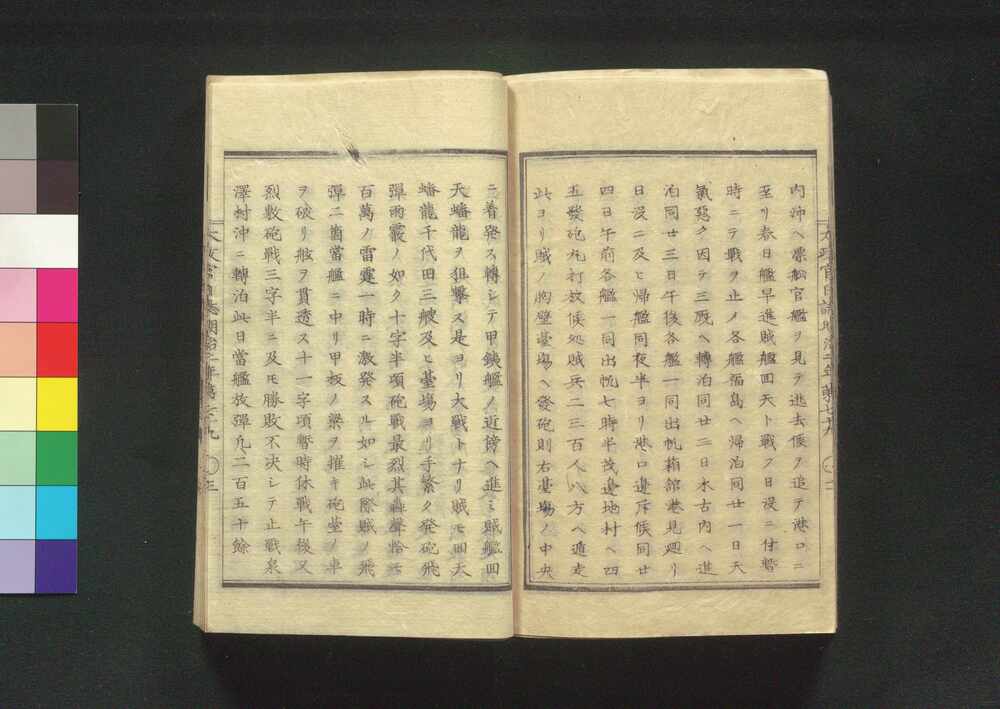 内沖ヘ漂船官艦ヲ見テ迯去候ヲ追テ港口ニ
至リ春日艦早進賊艦回天ト戰フ日没ニ付暫
時ニテ戰ヲ止メ各艦福島ヘ帰泊同廿一日天
氣惡ク因テ三厩ヘ轉泊同廿二日木古内ヘ進
泊同廿三日午後各艦一同出帆箱館港見廻リ
日没ニ及ヒ帰艦同夜半ヨリ港口邊斥候同廿
四日午前各艦一同出帆七時半茂邊地村ヘ四
五發砲丸打放候処賊兵二三百人八方ヘ遁走
此ヨリ賊ノ胸壁臺場ヘ發砲則右臺場ノ中央
ニ着発ス轉シテ甲鉄艦ノ近傍ヘ進ミ賊艦回
天蟠龍ヲ狙撃ス是ヨリ大戰トナリ賊モ回天
蟠龍千代田三艘及ヒ臺場ヨリ手繁ク発砲飛
彈雨霰ノ如ク十字半頃砲戰最烈其轟聲恰モ
百萬ノ雷霆一時ニ激発スル如シ此際賊ノ飛
彈二箇當艦ニ中リ甲板ノ梁ヲ摧キ砲臺ノ車
ヲ破リ舷ヲ貫透ス十一字頃暫時休戰午後又
烈敷砲戰三字半ニ及モ勝敗不决シテ止戰泉
澤村沖ニ轉泊此日當艦放彈凡二百五十餘
太政官日誌明治二年第七十九 三